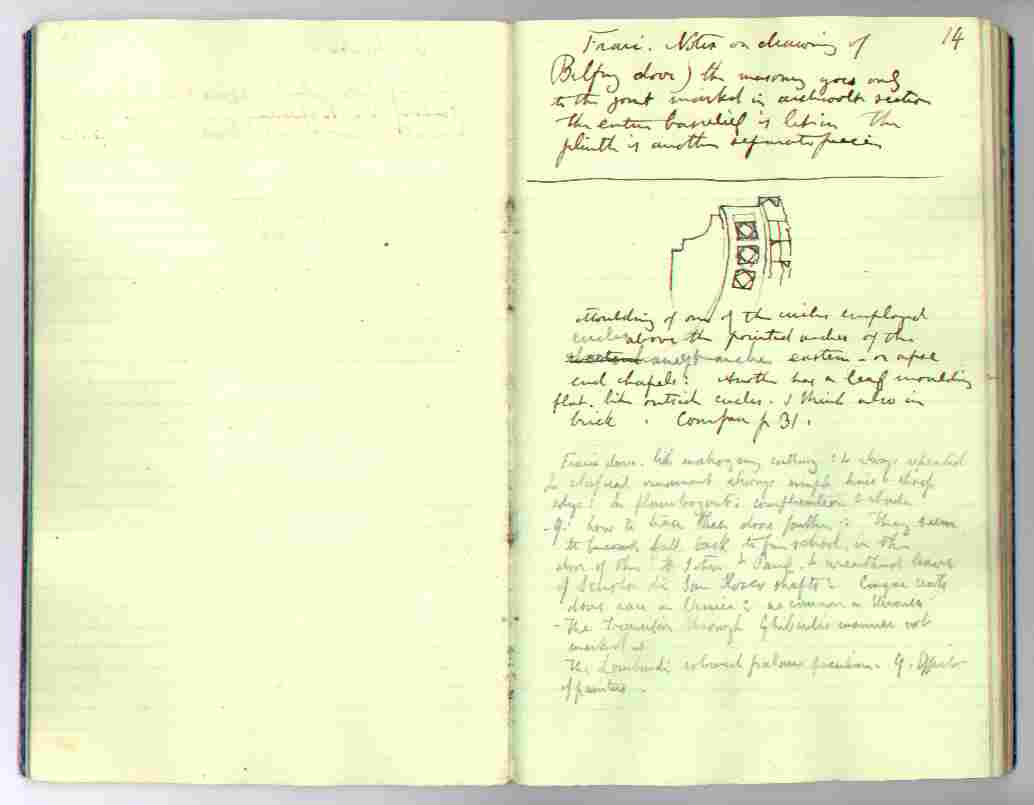 14
Frari. Notes on drawing of
Belfry door) the masonry goes only
to the joint marked in archivolt section
the entire basrelief is let in The
plinth is another separate piece
Moulding of one of the circles employed
circles above the pointed arches of the
eastern - or apse
end chapels: Another has a leaf moulding
flat. like outside circles. I think also in
brick . Compare p 31.
Frari door. like mahogany cutting: always repeated
In classical ornament always simple lines & sharp
edge: In flamboyant: complication &
- Q: how to trace these doors further: They seem
to fall back to school, in the
door of the St John & Paul, & wreathed leaves
of Scuola di San Rocco shafts:
doors rare in Venice: as common in Verona
- The transition through manner not
marked
The Lombardi coloured palaces peculiar. Q. Effect
of painters -